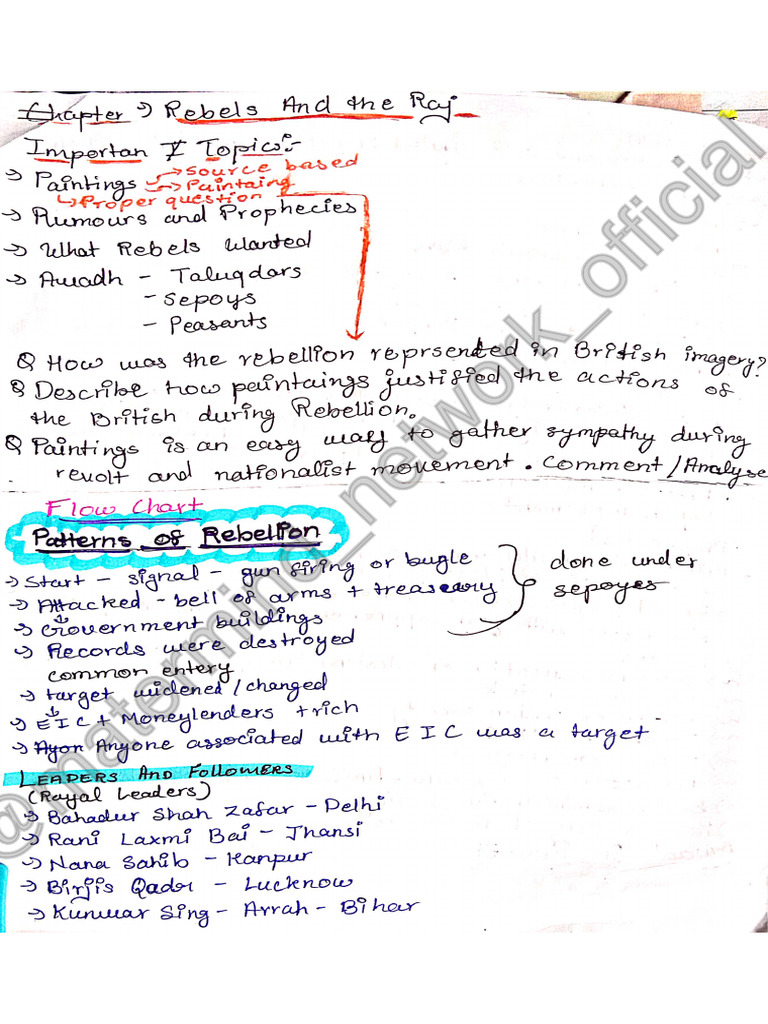 Chapter → Rebels And the Raj
Important Topics:-
→ Paintings → source based
→ Paintaing
↳ Proper question
→ Rumours and Prophecies
→ What Rebels Wanted
→ Awadh - Taluqdars
- Sepoys
- Peasants
Q How was the rebellion reprsented in British imagery?
Q Describe how paintaings justified the actions of
the British during Rebellion.
Q Paintings is an easy way to gather sympathy during
revolt and nationalist movement. Comment/Analyse
Flow Chart
Patterns of Rebellion
→ Start - signal - gun firing or bugle
→ Attacked - bell of arms + treaseury
→ Government buildings
→ Records were destroyed
done under
sepoyes
common entery
→ target widened/changed
→ EIC + Moneylenders + rich
→ Ayon Anyone associated with EIC was a target
LEADERS AND FOLLOWERS
(Royal Leaders)
→ Bahadur Shah Zafar - Delhi
→ Rani Laxmi Bai - Jhansi
→ Nana Sahib - Kanpur
→ Birjis Qadr - Lucknow
→ Kunwar Sing - Arrah - Bihar
@matermind_network_official